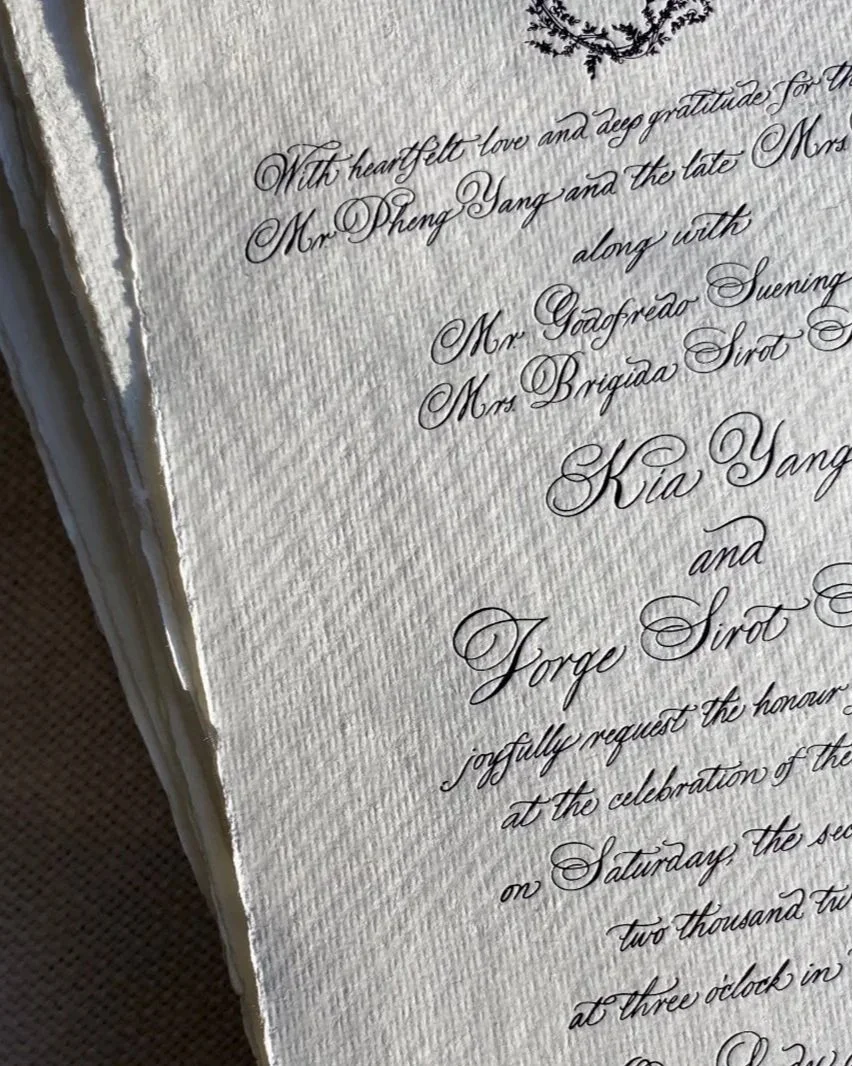 With heartfelt love and deep gratitude for
Mr Pheng Yang and the late Mrs
along with
Mr. Godofredo Suening
Mrs. Brigida Sirot
Kia Yang
and
Jorge Sirot
joyfully request the honour
at the celebration of the
on Saturday, the
two thousand
at three o'clock in